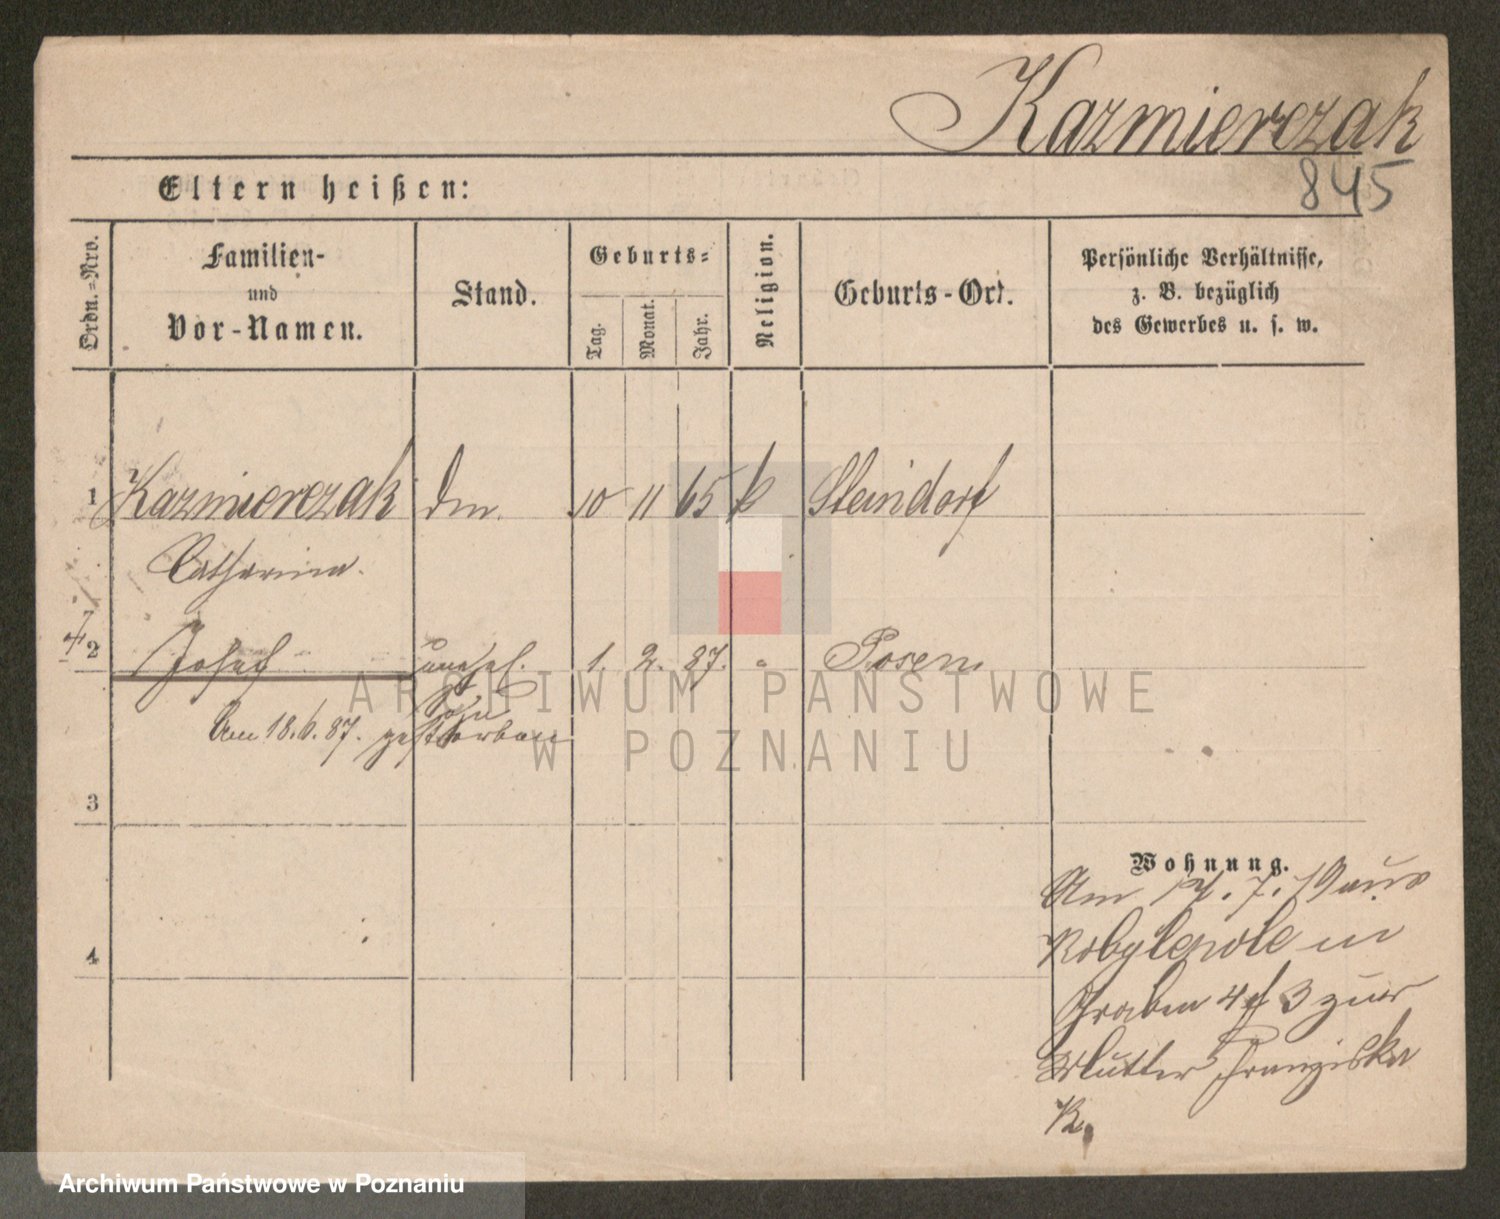 Kazmierczak
845
Eltern heißen:
Ordn.=Nro.
Familien-
und
Vor-Namen.
Stand.
Geburts-
Tag.
Monat.
Jahr.
Religion.
Geburts-Ort.
Persönliche Verhältnisse,
z. B. bezüglich
des Gewerbes u. s. w.
1 Kazmierczak 10 11 65 k Steindorf
Catharina.
2 Josef unehel. 1. 2. 87. " Posen
Sohn
Am 18.6.87. gestorben
3
4
Wohnung.
Am 7. aus
Kobylepole in
Graben 3 zur
Mutter Franziska
K.
ARCHIWUM PAŃSTWOWE
W POZNANIU
Archiwum Państwowe w Poznaniu